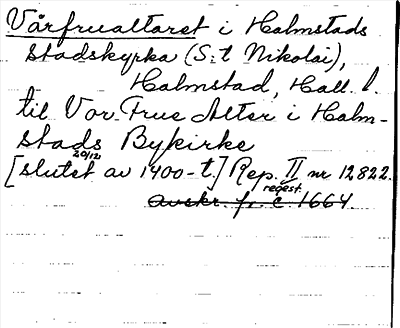 Vårfrualtaret i Halmstads
stadskyrka (S:t Nikolai),
Halmstad, Hall. l.
til Vor Frue Alter i Halm-
stads Bykirke
20/12
[slutet av 1400-t.] Rep. II nr 12822.
regest.
Avskr. fr. c. 1664.